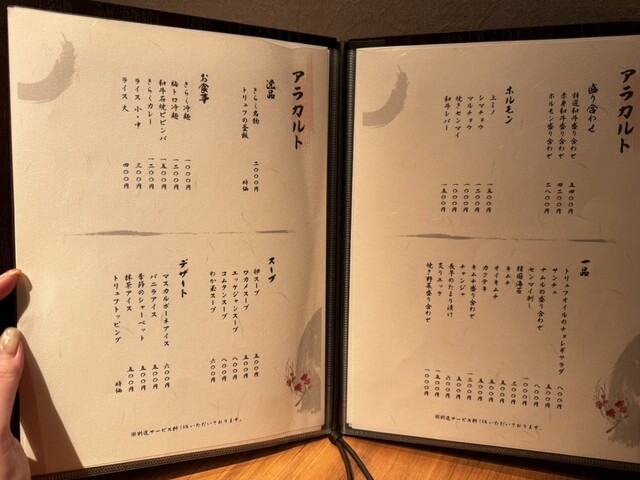 アラカルト
盛り合わせ
特選和牛盛り合わせ 五四〇〇円
赤身和牛盛り合わせ 四二〇〇円
ホルモン盛り合わせ 二八〇〇円
ホルモン
上ミノ 一五〇〇円
シマチョウ 一二〇〇円
マルチョウ 一〇〇〇円
焼きセンマイ 一〇〇〇円
和牛レバー 一五〇〇円
一品
トリュフオイルのチョレギサラダ 八〇〇円
サンチュ 五〇〇円
ナムルの盛り合わせ 八〇〇円
センマイ刺し 一〇〇〇円
韓国海苔 三〇〇円
キムチ 五〇〇円
オイキムチ 五〇〇円
カクテキ 五〇〇円
キムチ盛り合わせ 一二〇〇円
チャンジャ 五〇〇円
長芋のたまり漬け 五〇〇円
炙りユッケ
焼き野菜盛り合わせ 一〇〇〇円
※別途サービス料10%いただいております。
アラカルト
逸品
きらく名物
トリュフの釜飯 二〇〇〇円
時価
お食事
きらく冷麺 一〇〇〇円
梅トロ冷麺 一二〇〇円
和牛石焼ビビンバ 一五〇〇円
きらくカレー 一二〇〇円
ライス 小・中 三五〇円
ライス 大 四〇〇円
スープ
卵スープ 五〇〇円
ワカメスープ 五〇〇円
ユッケジャンスープ 八〇〇円
コムタンスープ 八〇〇円
わか玉スープ 六〇〇円
デザート
マスカルポーネアイス 六〇〇円
バニラアイス 五〇〇円
季節のシャーベット 五〇〇円
抹茶アイス 五〇〇円
トリュフトッピング 時価
※別途サービス料10%いただいております。